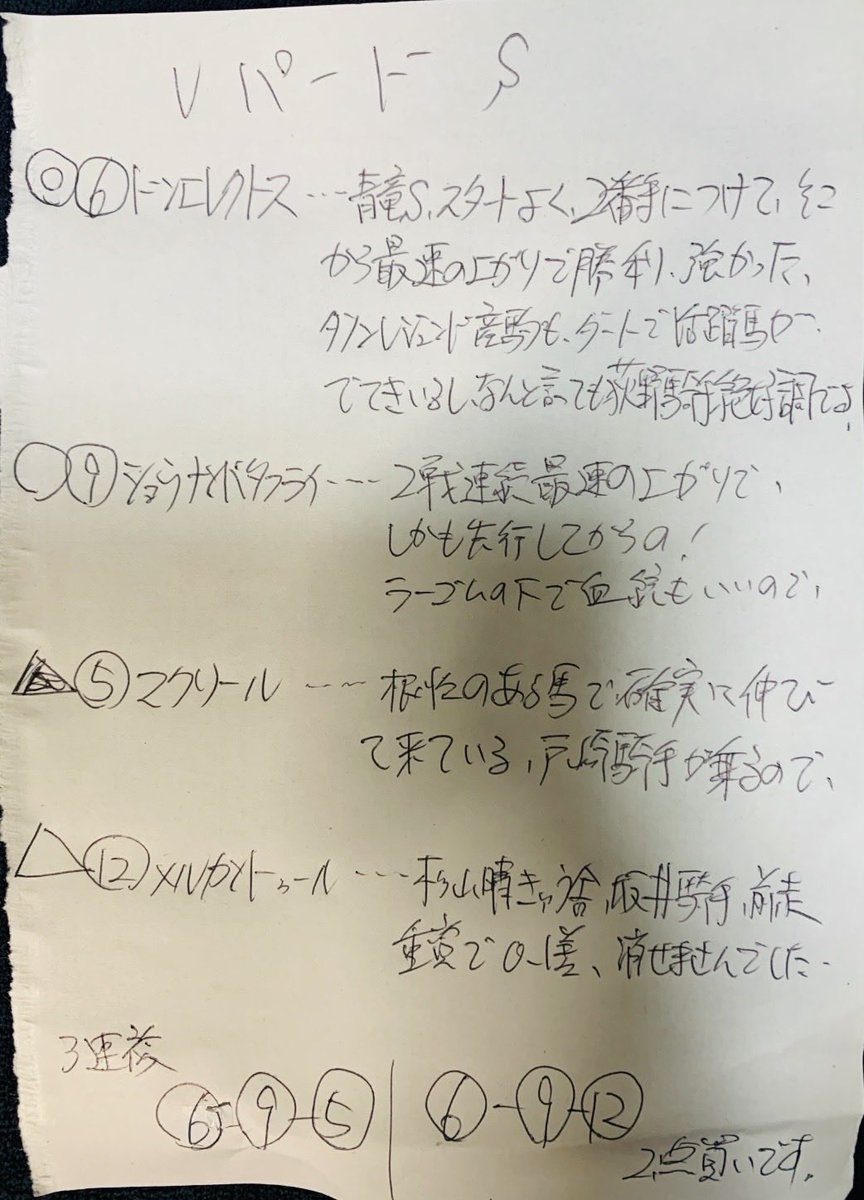 レパードS
◎⑥ドンエレクトス…青竜S、スタートよく、2番手につけて、そこ
から最速の上がりで勝利、強かった、
タノンレジェンド産駒も、ダートで活躍馬が
でてきいるし、なんと言っても荻野騎手絶好調です!
○⑨ショウナンバタフライ……2戦連続最速の上がりで、
しかも先行してからの!
ラーゴムの下で血統もいいので、
▲⑤マクリール……根性のある馬で、確実に伸び
て来ている、戸崎騎手が乗るので、
△⑫メルカントゥール…杉山晴きゅう舎、坂井騎手、前走
重賞で0.1差、消せませんでした.
3連複
⑥-⑨-⑤|⑥-⑨-⑫
2点買いです.